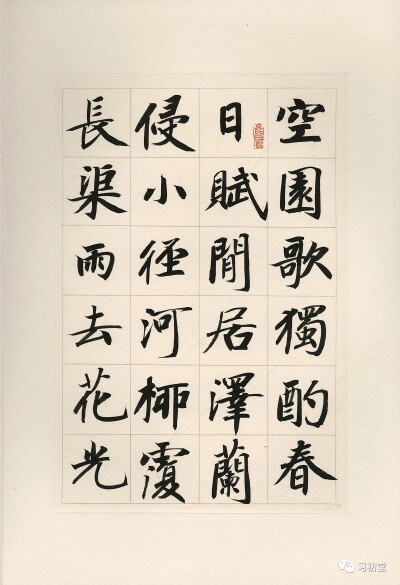 空園歌獨酌春
日賦閒居澤蘭
侵小徑河柳覆
長渠雨去花光
习初堂